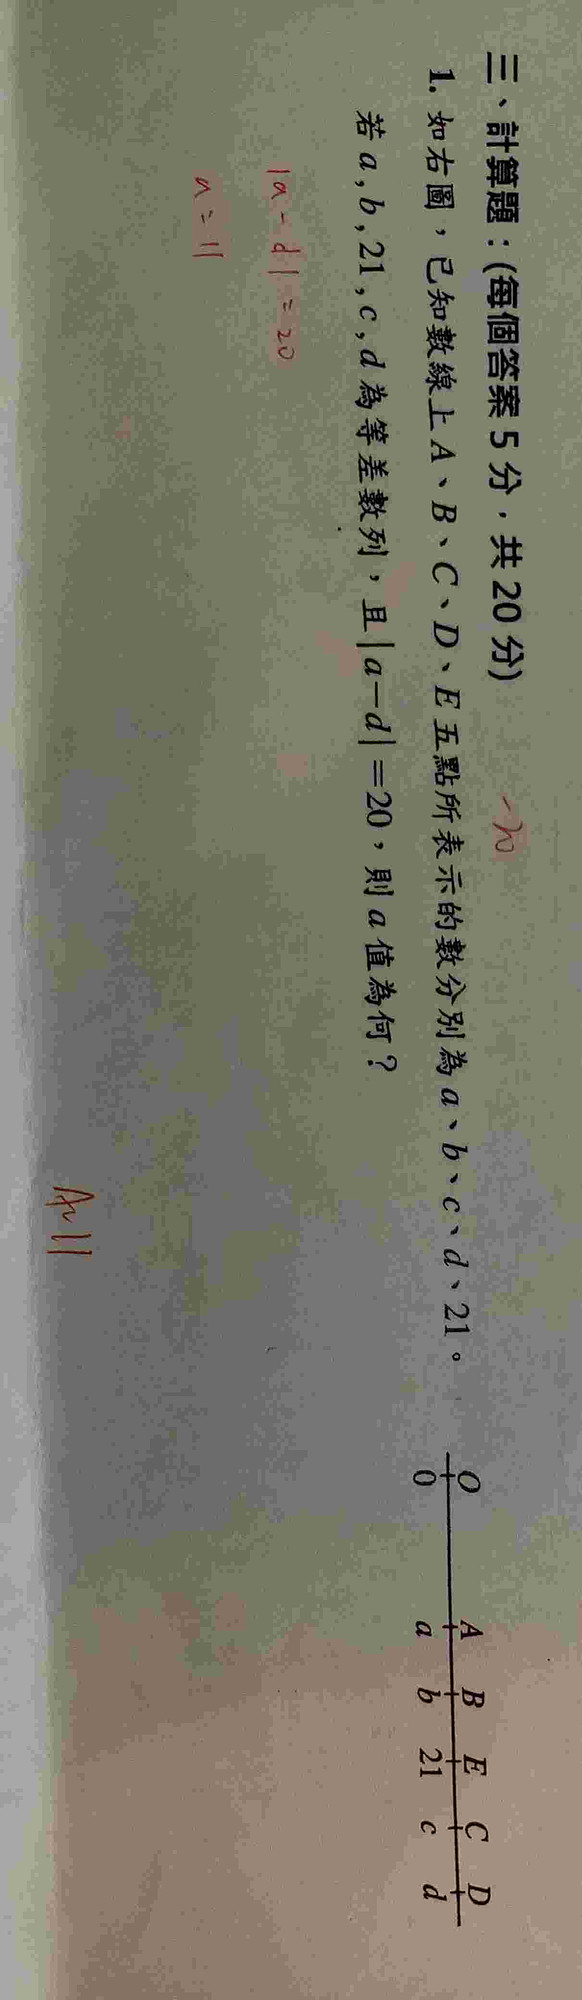 三、計算題：(每個答案 5 分，共 20 分)
1. 如右圖，已知數線上 A、B、C、D、E 五點所表示的數分別為 a、b、c、d、21。
若 a , b , 21 , c , d 為等差數列，且 |a－d|＝20，則 a 值為何？
O A B E C D
0 a b 21 c d
|a-d|=20
a=11
A~11